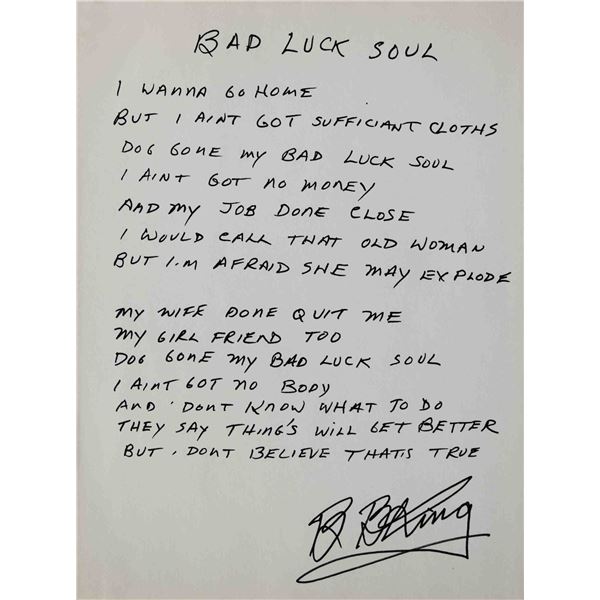 BAD LUCK SOUL
I WANNA GO HOME
BUT I AINT GOT SUFFICIANT CLOTHS
DOG GONE MY BAD LUCK SOUL
I AINT GOT NO MONEY
AND MY JOB DONE CLOSE
I WOULD CALL THAT OLD WOMAN
BUT I.M AFRAID SHE MAY EXPLODE
MY WIFE DONE QUIT ME
MY GIRL FRIEND TOO
DOG GONE MY BAD LUCK SOUL
I AINT GOT NO BODY
AND DONT KNOW WHAT TO DO
THEY SAY THING'S WILL GET BETTER
BUT DONT BELIEVE THATS TRUE
B B King